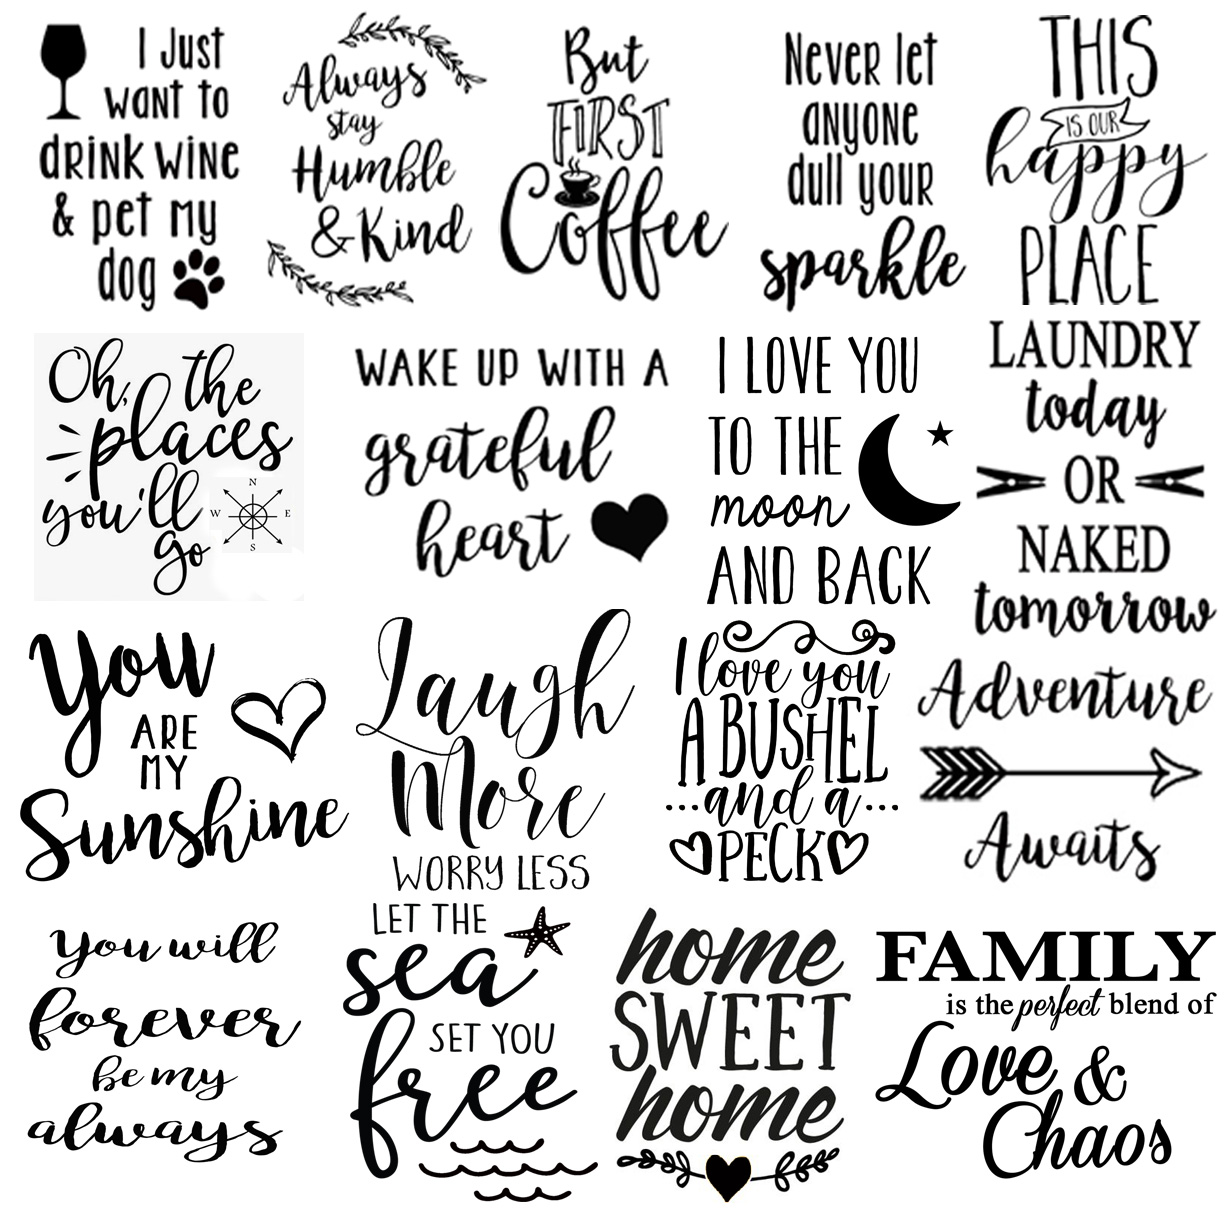 I Just
want to
drink wine
& pet my
dog
Always
stay
Humble
& Kind
But
FIRST
Coffee
Never let
anyone
dull your
sparkle
THIS
IS OUR
happy
PLACE
Oh, the
places
you'll
go
N
W E
S
WAKE UP WITH A
grateful
heart
I LOVE YOU
TO THE
moon
AND BACK
LAUNDRY
today
OR
NAKED
tomorrow
You
ARE
MY
Sunshine
Laugh
More
WORRY LESS
I love you
A BUSHEL
...and a...
PECK
Adventure
Awaits
You will
forever
be my
always
LET THE
sea
SET YOU
free
home
SWEET
home
FAMILY
is the perfect blend of
Love &
Chaos